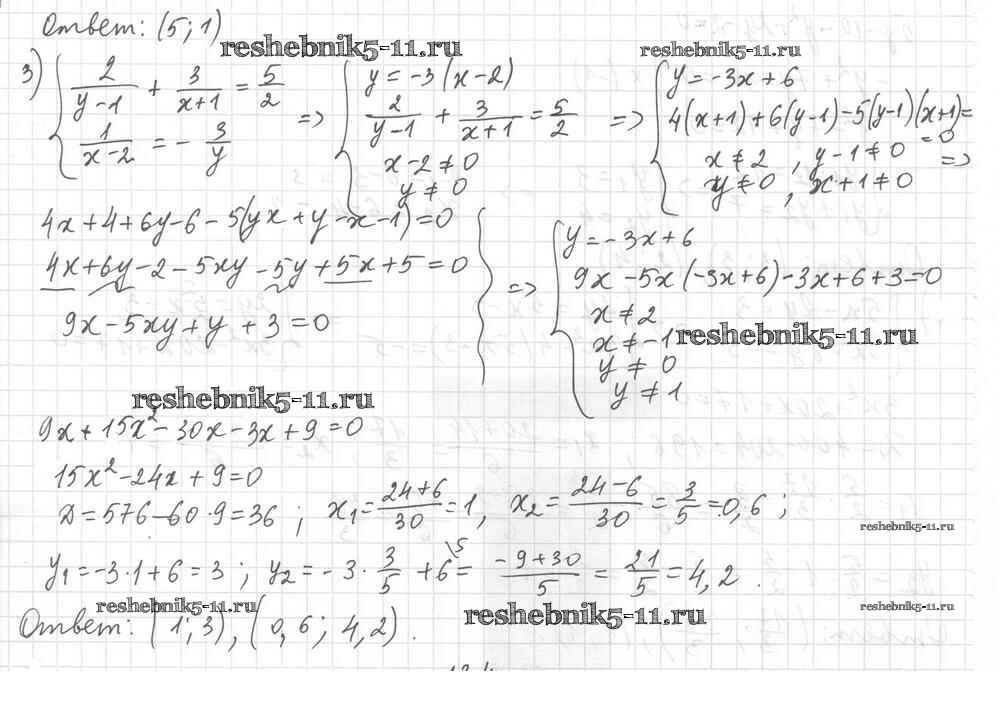 Ответ: (5; 1)
reshebnik5-11.ru
reshebnik5-11.ru
3) { 2/(y-1) + 3/(x+1) = 5/2
1/(x-2) = - 3/y
=> { y = -3(x-2)
2/(y-1) + 3/(x+1) = 5/2
x-2 ≠ 0
y ≠ 0
=> { y = -3x+6
4(x+1)+6(y-1)-5(y-1)(x+1)=
=0
x ≠ 2, y-1 ≠ 0 =>
y ≠ 0, x+1 ≠ 0
4x+4+6y-6-5(yx+y-x-1)=0
4x+6y-2-5xy-5y+5x+5=0
9x-5xy+y+3=0
=> { y = -3x+6
9x-5x(-3x+6)-3x+6+3=0
x ≠ 2
x ≠ -1
y ≠ 0
y ≠ 1
reshebnik5-11.ru
reshebnik5-11.ru
9x+15x²-30x-3x+9=0
15x²-24x+9=0
D=576-60·9=36; x₁=(24+6)/30=1, x₂=(24-6)/30=3/5=0,6;
reshebnik5-11.ru
y₁=-3·1+6=3; y₂=-3·3/5+6\5=(-9+30)/5=21/5=4,2.
reshebnik5-11.ru
reshebnik5-11.ru
reshebnik5-11.ru
Ответ: (1; 3), (0,6; 4,2).